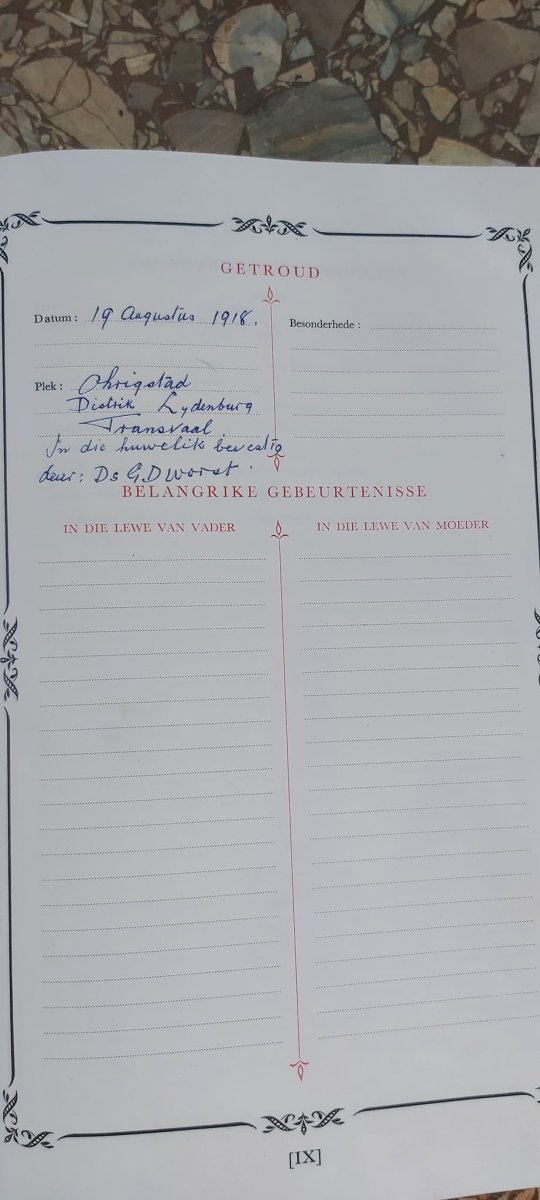 GETROUD
Datum : 19 Augustus 1918.
Besonderhede :
Plek : Ohrigstad
Distrik Lydenburg
Transvaal
In die huwelik bevestig
deur: Ds G.D Worst.
BELANGRIKE GEBEURTENISSE
IN DIE LEWE VAN VADER
IN DIE LEWE VAN MOEDER
[IX]